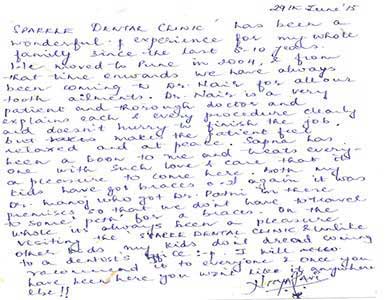 29th June '15
'SPARKLE DENTAL CLINIC' has been a
wonderful experience for my whole
family since the last 8-10 years.
We moved to Pune in 2004, & from
that time onwards we have always
been coming to Dr. Nair for all our
tooth ailments. Dr. Nair is a very
patient and thorough doctor and
explains each & every procedure clearly
and doesn't hurry to finish the job,
but makes the patient feel
relaxed and at peace. Sapna has
been a boon to me and treats every-
one with such love & care that it's
a pleasure to come here. Both my
kids have got braces again it was
Dr. Manoj who got Dr. in these
premises so that we don't have to travel
to some for a braces. On the
whole it's always been a pleasure
visiting the SPARKLE DENTAL CLINIC & unlike
other kids my kids don't dread coming
to a dentist's office. I will
recommend it to everyone & once you
have been here you won't like it anywhere
else!!